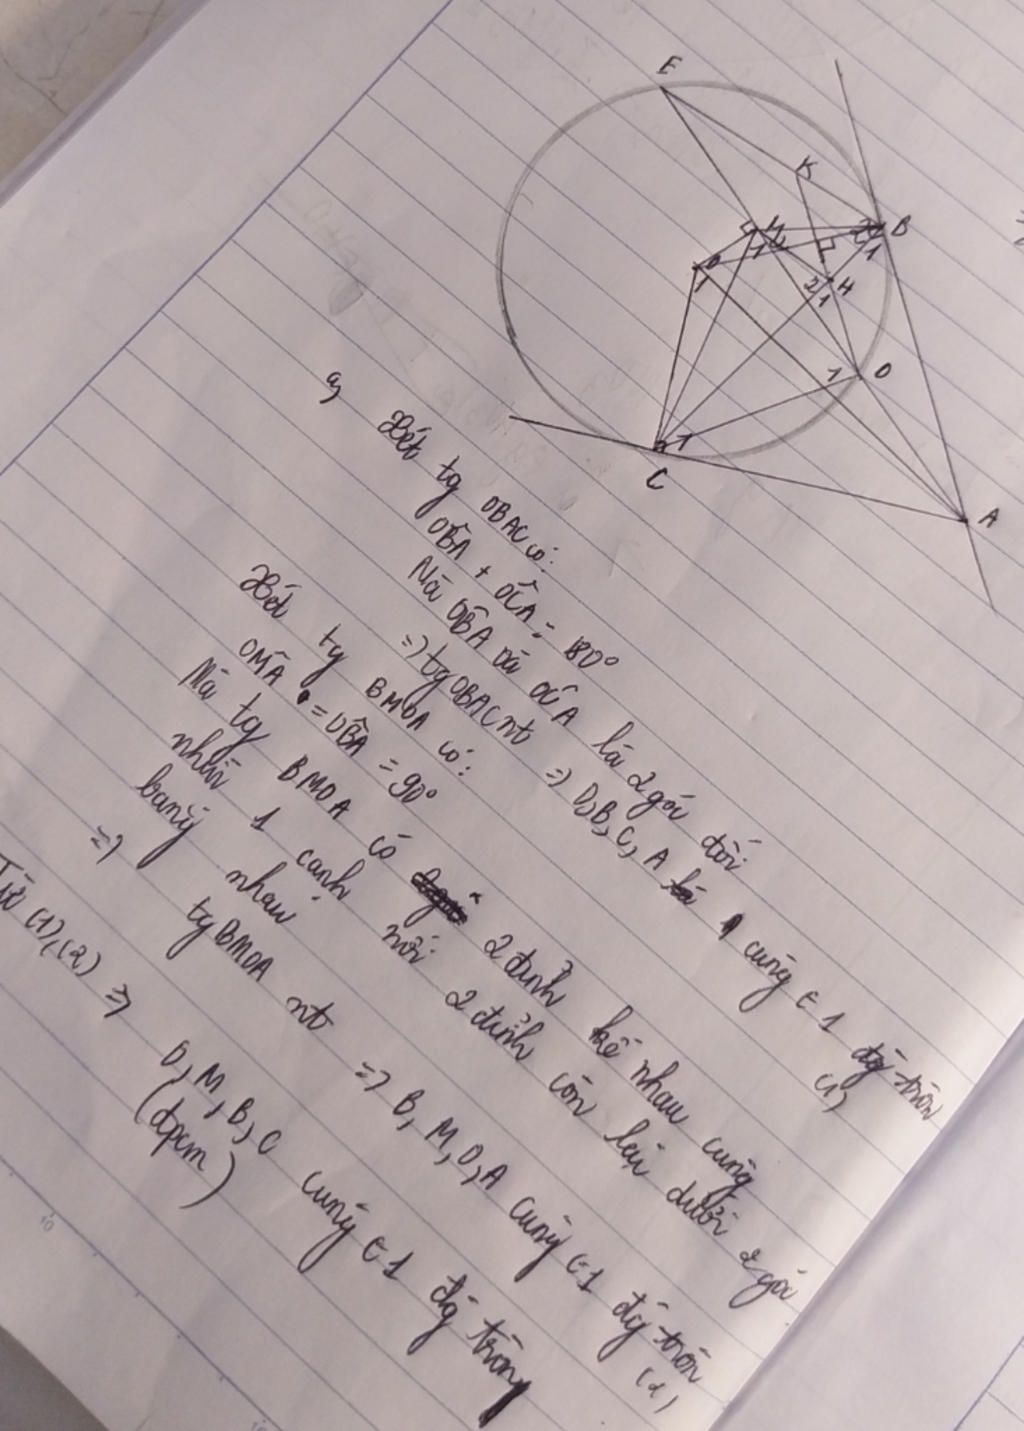 E
K
B
M
O
H
D
C
A
a,
Xét tg OBAC có:
OB̂A + OĈA = 180°
Mà OB̂A và OĈA là 2 góc đối
=> tg OBAC nt => O, B, C, A cùng ∈ 1 đg tròn (1)
Xét tg BMOA có:
OM̂A = OB̂A = 90°
Mà tg BMOA có 2 đỉnh kề nhau cùng
nhìn 1 cạnh nối 2 đỉnh còn lại dưới 2 góc
bằng nhau
=> tg BMOA nt => B, M, O, A cùng ∈ 1 đg tròn (2)
Từ (1), (2) => O, M, B, C cùng ∈ 1 đg tròn
(đpcm)